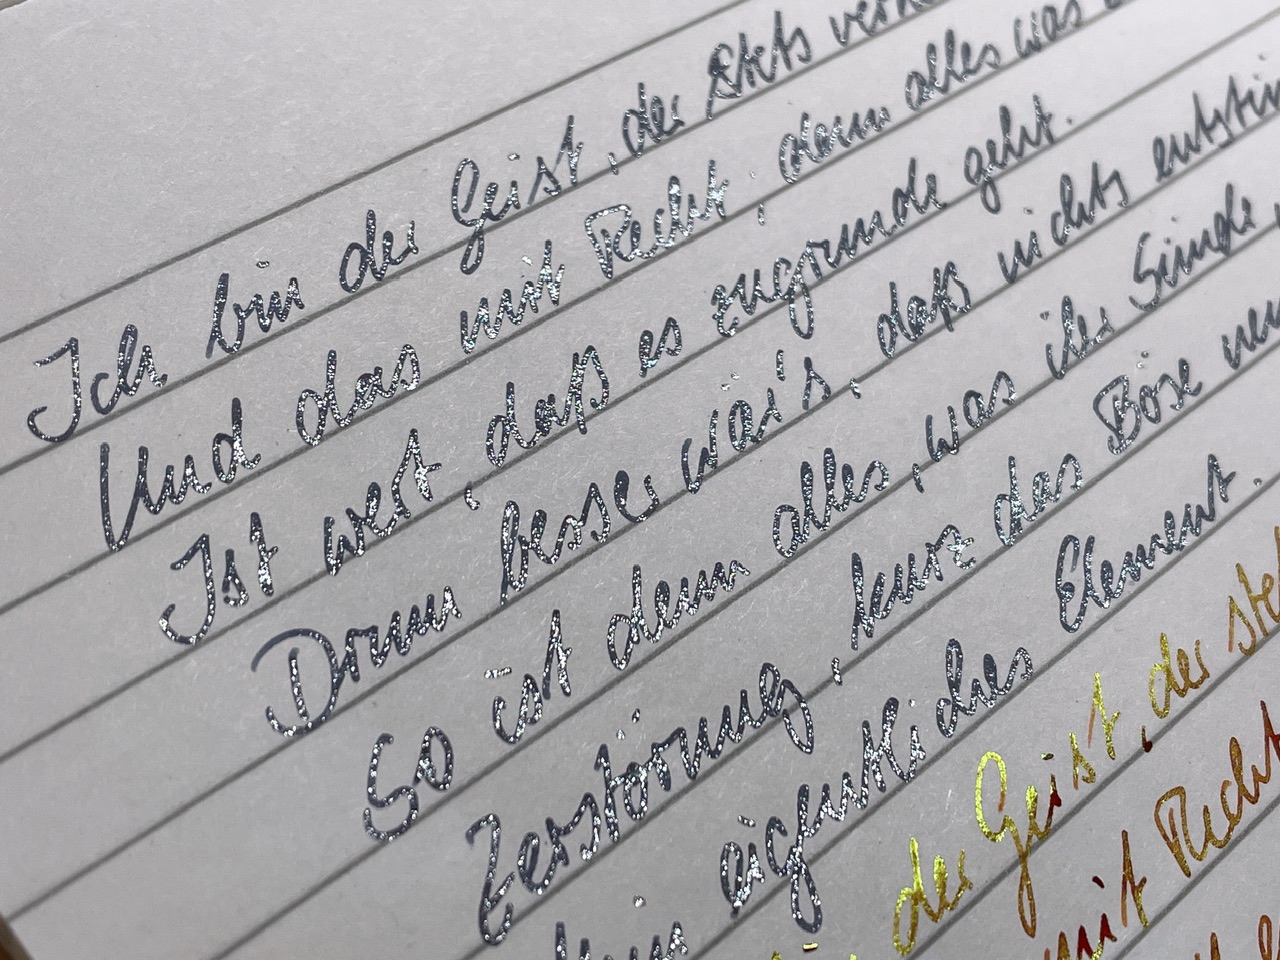 Ich bin der Geist, der stets
Und das mit Recht, denn alles was
Ist wert, daß es zugrunde geht.
Drum besser wär's, daß nichts
So ist denn alles, was ihr Sünde
Zerstörung, kurz das Böse
eigentliches Element.
der Geist, der
mit Recht